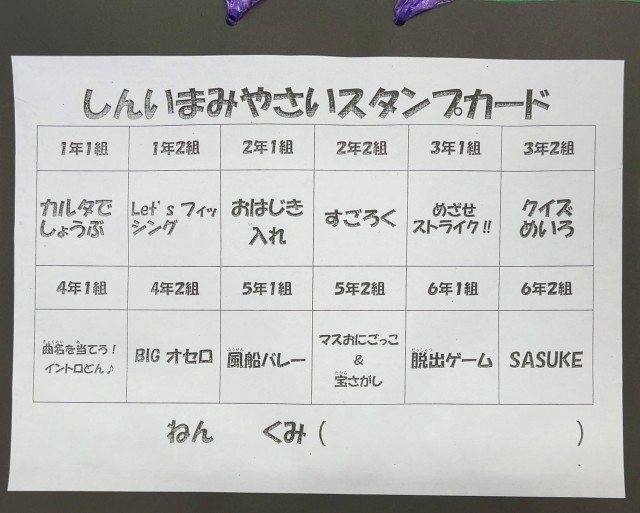 しんいまみやさいスタンプカード
1年1組 1年2組 2年1組 2年2組 3年1組 3年2組
カルタで
しょうぶ
Let's フィッ
シング
おはじき
入れ
すごろく
めざせ
ストライク!!
クイズ
めいろ
4年1組 4年2組 5年1組 5年2組 6年1組 6年2組
曲名を当てろ!
イントロどん♪
BIG オセロ
風船バレー
マスおにごっこ
&
宝さがし
脱出ゲーム
SASUKE
ねん くみ ( )